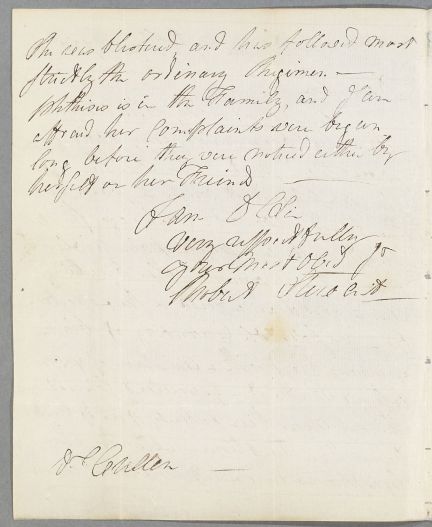 She was blistered, and has followed most
strictly the ordinary Regimen —
phthisis is in the Family, and I am
affraid her Complaints were begun
long before they were noticed either by
herself or her Friend —
I am D Sir
very respectfully
your most obed
Robert
Dr Cullen —